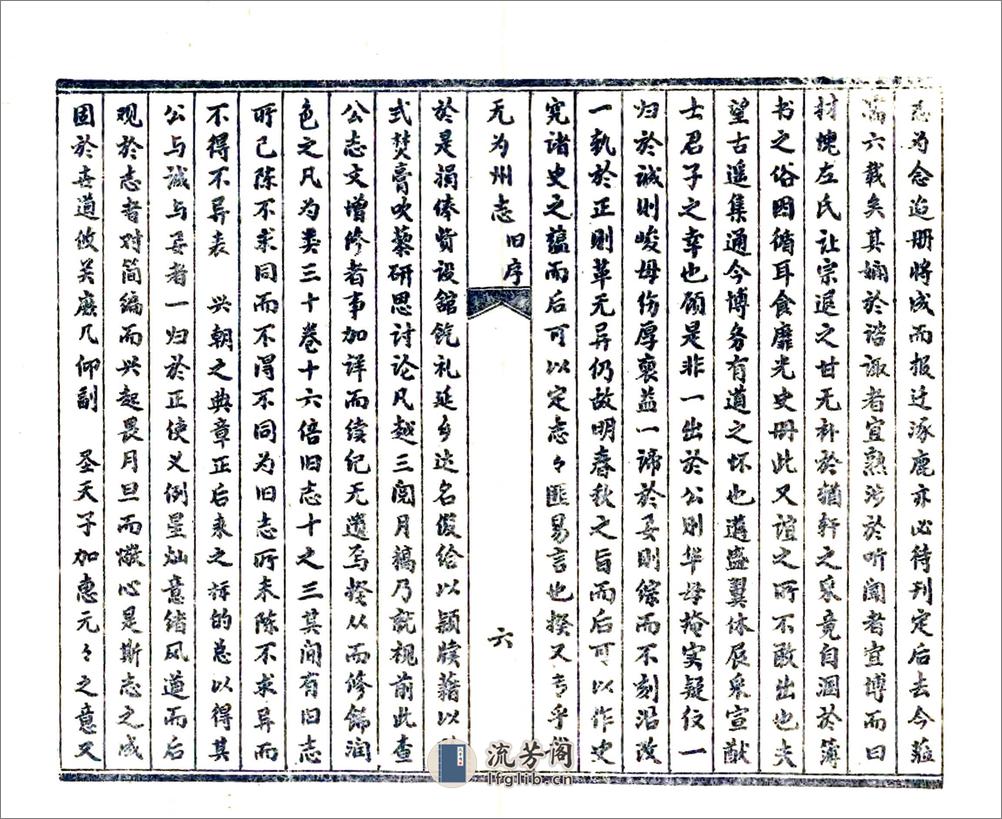 为念迨册将成而报迁涿鹿亦必待刊定后去今蒞
六载矣其娴於谘諏者宜熟涉於听闻者宜博而曰
材愧左氏让宗遐之甘无补於輶轩之采竟自涸於薄
书之俗因循耳食靡光史册此又谊之所不敢出也夫
望古遥集通今博务有道之怀也遘盛翼休展采宣猷
士君子之幸也顾是非一出於公则华毋掩实疑仅一
归於诚则峻毋伤厚裒益一谛於妥则综而不刻沿改
一轨於正则革无异仍故明春秋之旨而后可以作史
究诸史之蕴而后可以定志々匪易言也揆又专乎
无为州志 旧序 六
於是捐俸赀设舘饩礼延乡达名儁给以颖牍藉以
式焚膏吹藜研思讨论凡越三阅月稿乃就视前此查
公志文增修者事加详而续纪无遗焉揆从而修饰润
色之凡为类三十卷十六倍旧志十之三其间有旧志
所已陈不求同而不得不同为旧志所未陈不求异而
不得不异表 兴朝之典章正后来之标的总以得其
公与诚与妥者一归於正使义例星灿意绪风遒而后
观於志者对简编而兴起畏月旦而憬心是斯志之成
固於世道攸关庶几仰副 圣天子加惠元々之意又
流芳阁
lfglib.cn